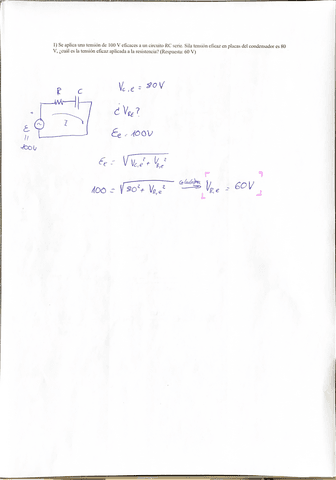 1) Se aplica una tensión de 100 V eficaces a un circuito RC serie. Si la tensión eficaz en placas del condensador es 80
V, ¿cuál es la tensión eficaz aplicada a la resistencia? (Respuesta: 60 V)
V_{c,e} = 80V
R C
¿V_{R,e}?
I
ε_e = 100V
ε
"
100V
ε_e = √(V_{c,e}² + V_{R,e}²)
100 = √(80² + V_{R,e}²) V_{R,e} = 60V